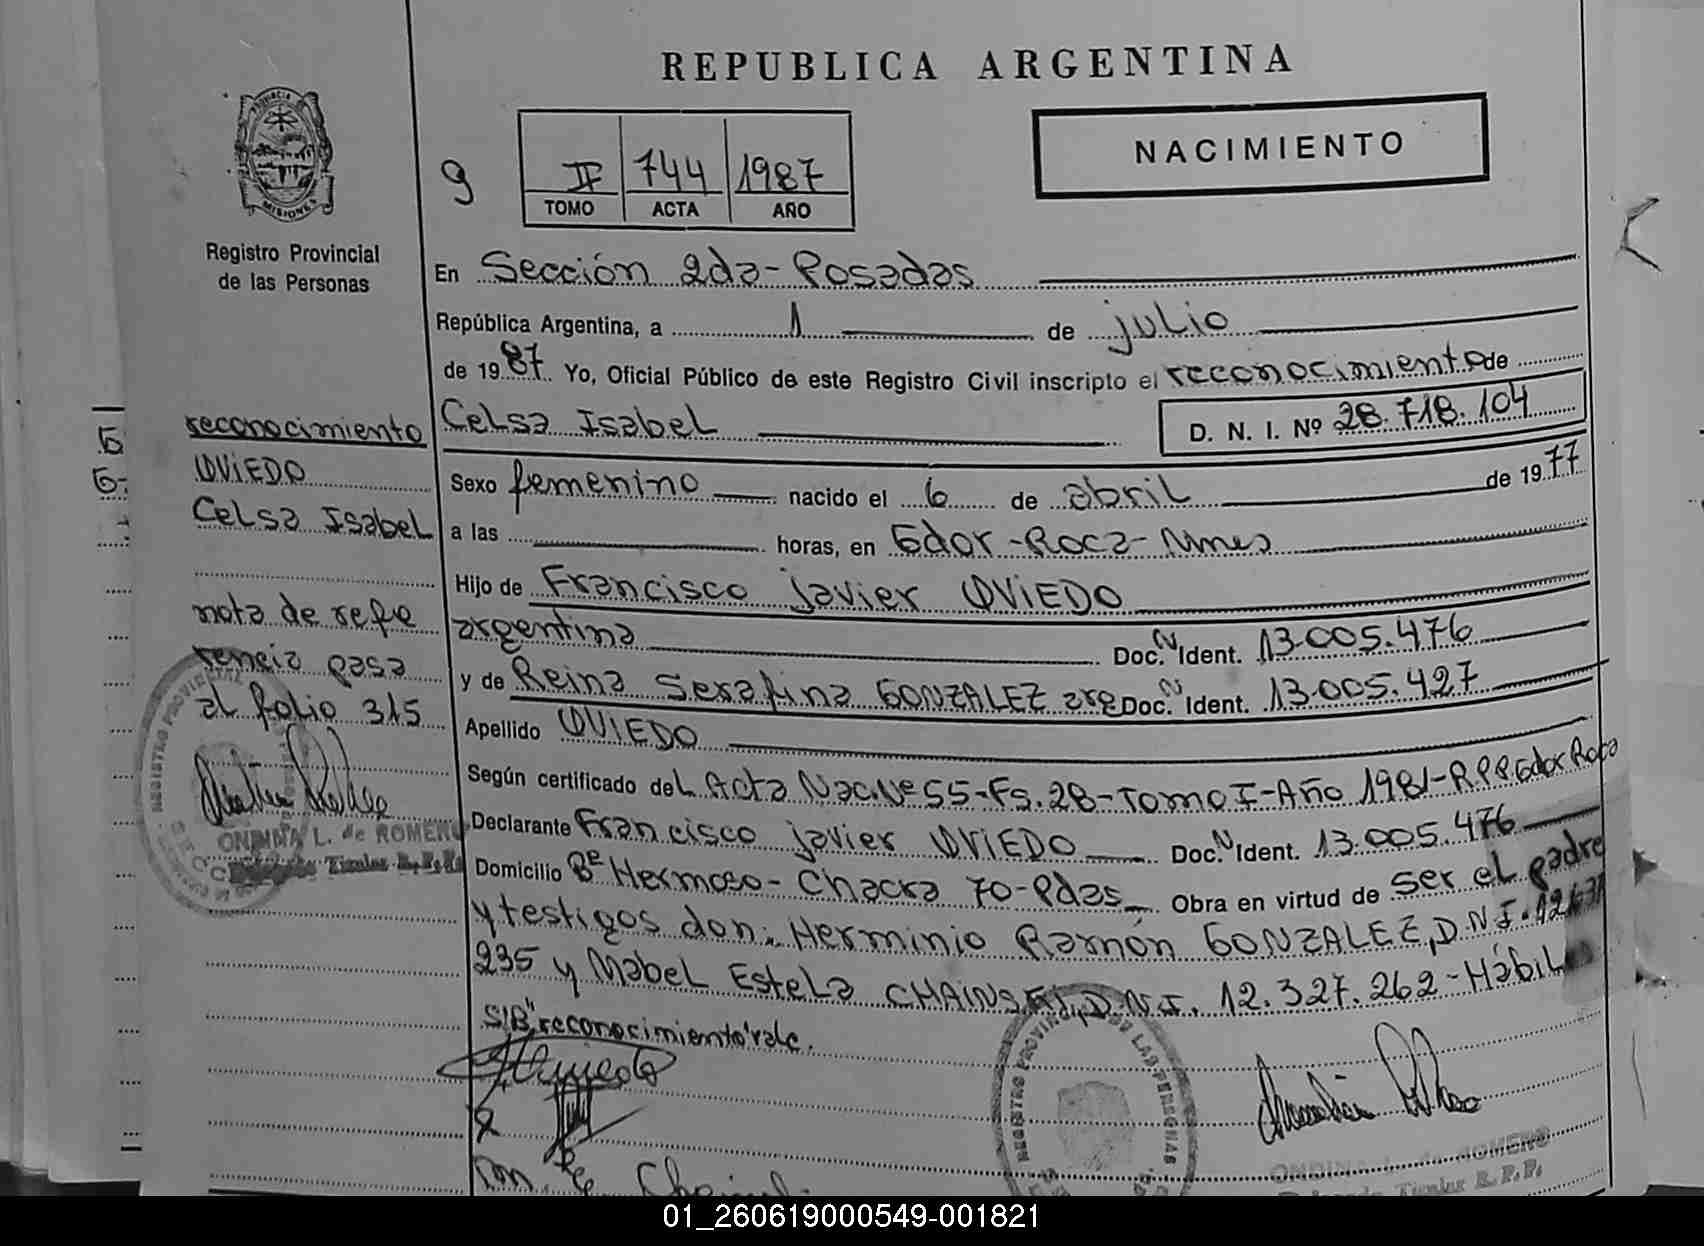 REPUBLICA ARGENTINA
PROVINCIA DE
MISIONES
Registro Provincial
de las Personas
9
II 744 1987
TOMO ACTA AÑO
NACIMIENTO
En Sección 2da-Posadas
República Argentina, a 1 de julio
de 1987 Yo, Oficial Público de este Registro Civil inscripto el reconocimiento de
Celsa Isabel D. N. I. Nº 28.718.104
Sexo femenino nacido el 6 de abril de 1977
a las horas, en Gdor-Roca-Mnes
Hijo de Francisco Javier OVIEDO
argentina Doc. N Ident. 13.005.476
y de Reina Serafina GONZALEZ arg Doc. N Ident. 13.005.427
Apellido OVIEDO
Según certificado del Acta Nac.Nº 55-Fs.28-Tomo I-Año 1981-R.P.P.Gdor Roca
Declarante Francisco Javier OVIEDO Doc. N Ident. 13.005.476
Domicilio Bº Hermoso-Chacra 70-Pdas Obra en virtud de ser el padre
y testigos don: Herminio Ramón GONZALEZ, D.N.I.
235 y Mabel Estela D.N.I. 12.327.262-Hábil
S/B "reconocimiento" vale.
reconocimiento
OVIEDO
Celsa Isabel
nota de refe
rencia pasa
al folio 315
REGISTRO PROVINCIAL
ONDINA L. de ROMERO
Titular R.P.P.
REGISTRO PROVINCIAL DE LAS PERSONAS
ONDINA L. de ROMERO
Delegada Titular R.P.P.
01_260619000549-001821